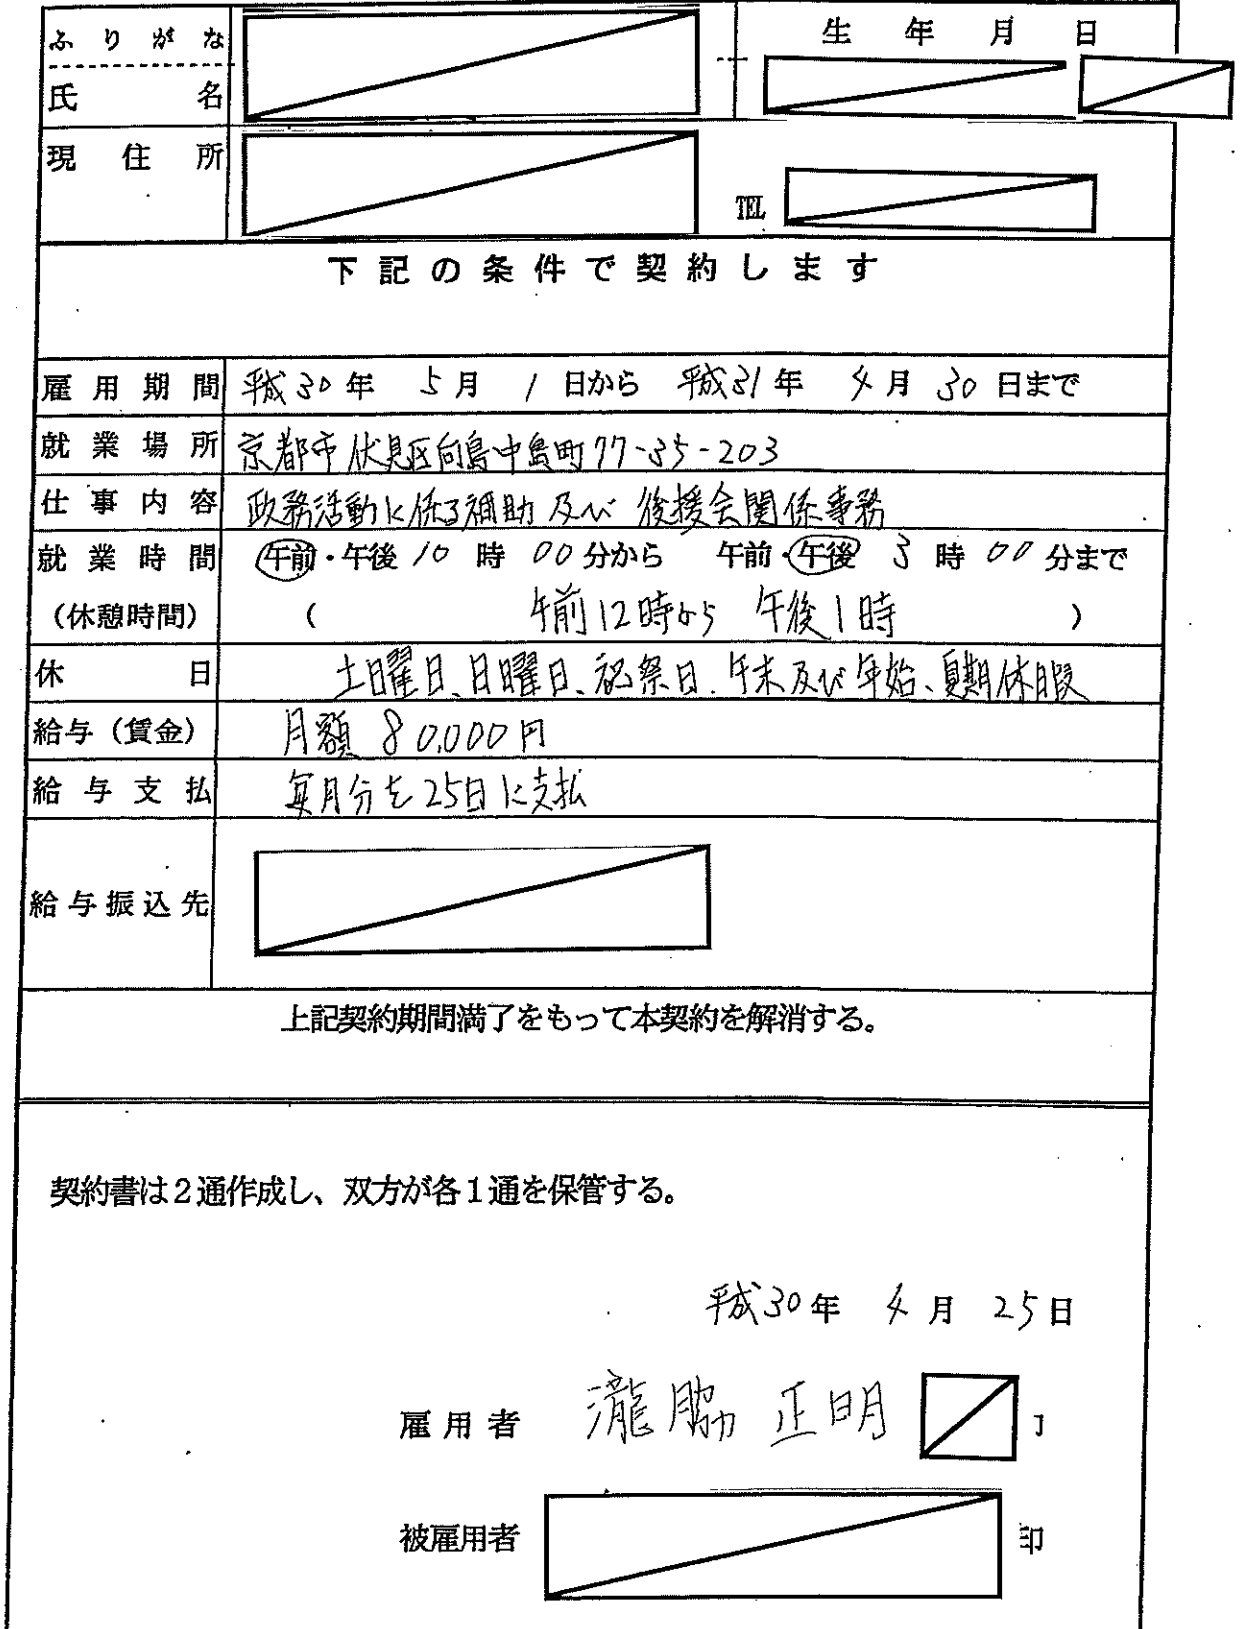 ふりがな
生年月日
氏名
現住所
TEL
下記の条件で契約します
雇用期間 平成30年 5月 1日から 平成31年 4月 30日まで
就業場所 京都市伏見区向島中島町77-35-203
仕事内容 政務活動に係る補助及び 後援会関係事務
就業時間 午前・午後 10時 00分から 午前・午後 3時 00分まで
(休憩時間) ( 午前12時から 午後1時 )
休日 土曜日、日曜日、祝祭日、年末及び年始、夏期休暇
給与(賃金) 月額 80,000円
給与支払 毎月分を25日に支払
給与振込先
上記契約期間満了をもって本契約を解消する。
契約書は2通作成し、双方が各1通を保管する。
平成30年 4月 25日
雇用者 瀧脇 正明
被雇用者 印